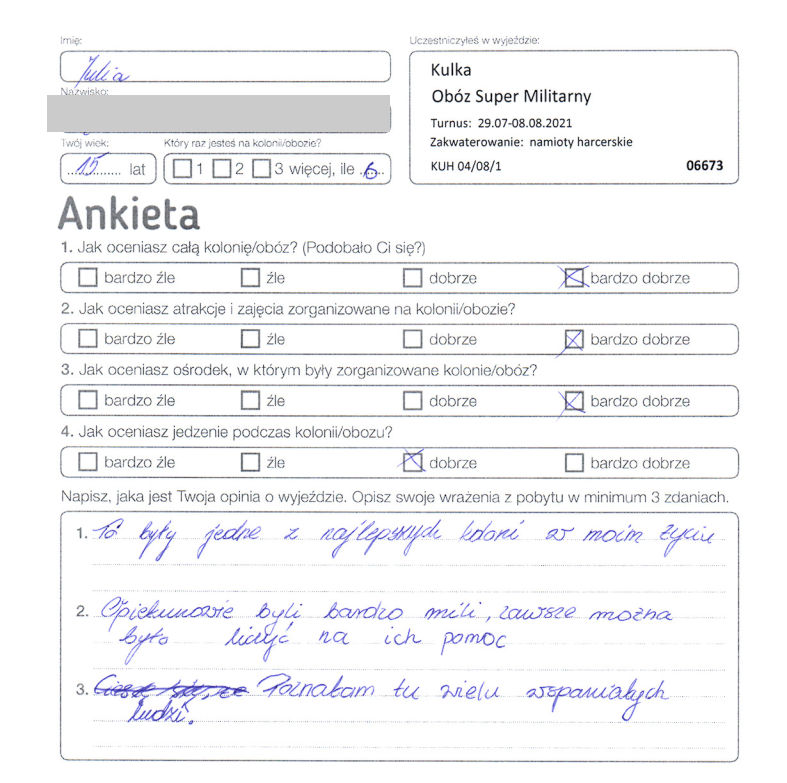 Imię:
Julia
Nazwisko:
Twój wiek:
15 lat
Który raz jesteś na kolonii/obozie?
1 2 3 więcej, ile 6
Uczestniczyłeś w wyjeździe:
Kulka
Obóz Super Militarny
Turnus: 29.07-08.08.2021
Zakwaterowanie: namioty harcerskie
KUH 04/08/1 06673
Ankieta
1. Jak oceniasz całą kolonię/obóz? (Podobało Ci się?)
bardzo źle źle dobrze bardzo dobrze
2. Jak oceniasz atrakcje i zajęcia zorganizowane na kolonii/obozie?
bardzo źle źle dobrze bardzo dobrze
3. Jak oceniasz ośrodek, w którym były zorganizowane kolonie/obóz?
bardzo źle źle dobrze bardzo dobrze
4. Jak oceniasz jedzenie podczas kolonii/obozu?
bardzo źle źle dobrze bardzo dobrze
Napisz, jaka jest Twoja opinia o wyjeździe. Opisz swoje wrażenia z pobytu w minimum 3 zdaniach.
1. To były jedne z najlepszych koloni w moim życiu
2. Opiekunowie byli bardzo mili, zawsze można
było liczyć na ich pomoc
3. Poznałam tu wielu wspaniałych
ludzi.